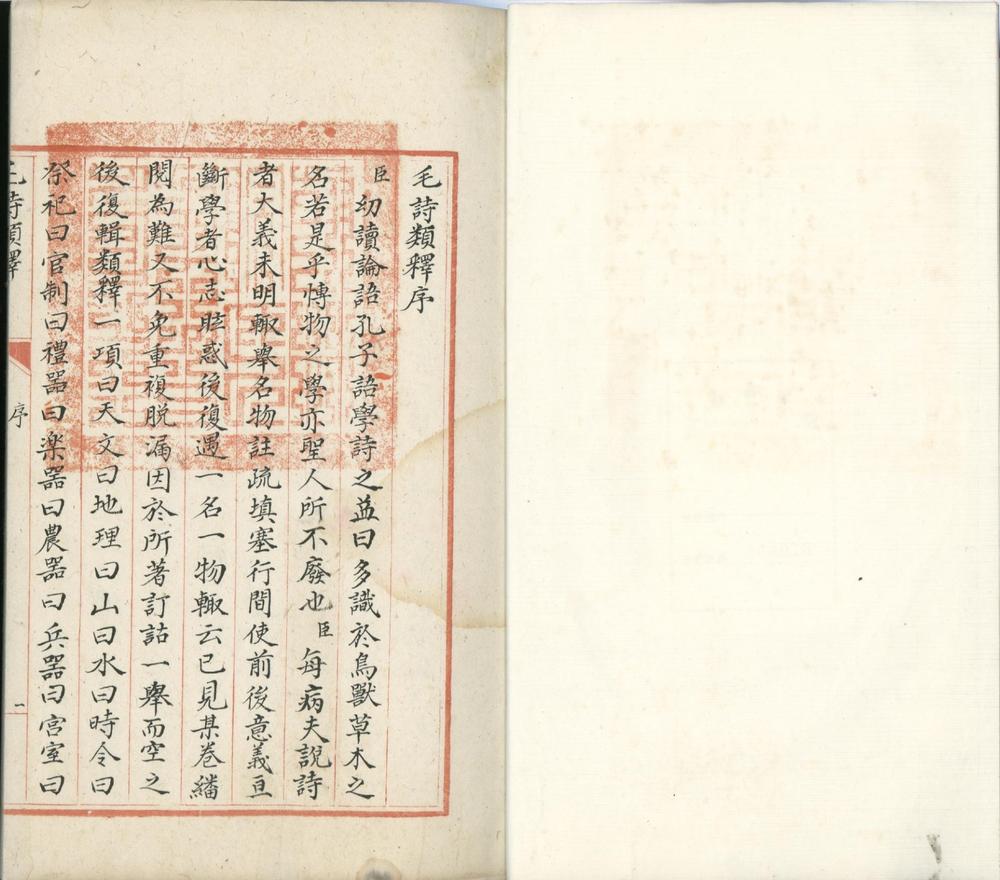 毛詩類釋序
臣幼讀論語孔子語學詩之益曰多識於鳥獸草木之
名若是乎愽物之學亦聖人所不廢也臣每病夫說詩
者大義未明輙舉名物註疏填塞行間使前後意義亘
斷學者心志眩惑後復遇一名一物輙云已見某卷繙
閱為難又不免重複脱漏因於所著訂詁一舉而空之
後復輯類釋一項曰天文曰地理曰山曰水曰時令曰
祭祀曰官制曰禮器曰楽器曰農器曰兵器曰宫室曰
毛詩類釋
序
一